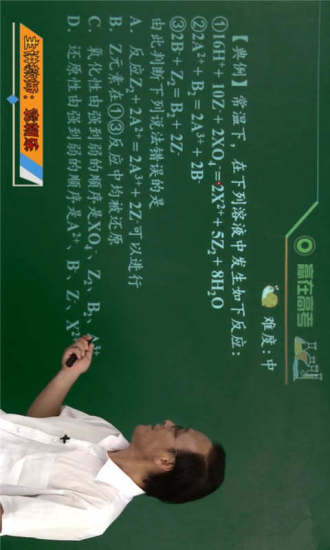 赢在高考
难度:中
【典例】常温下,在下列溶液中发生如下反应:
①16H⁺+10Z⁻+2XO₄⁻=2X²⁺+5Z₂+8H₂O
②2A²⁺+B₂=2A³⁺+2B⁻
③2B⁻+Z₂=B₂+2Z⁻
由此判断下列说法错误的是
A. 反应Z₂+2A²⁺=2A³⁺+2Z⁻可以进行
B. Z元素在①③反应中均被还原
C. 氧化性由强到弱的顺序是XO₄⁻、Z₂、B₂、A³⁺
D. 还原性由强到弱的顺序是A²⁺、B⁻、Z⁻、X²⁺
主讲教师: